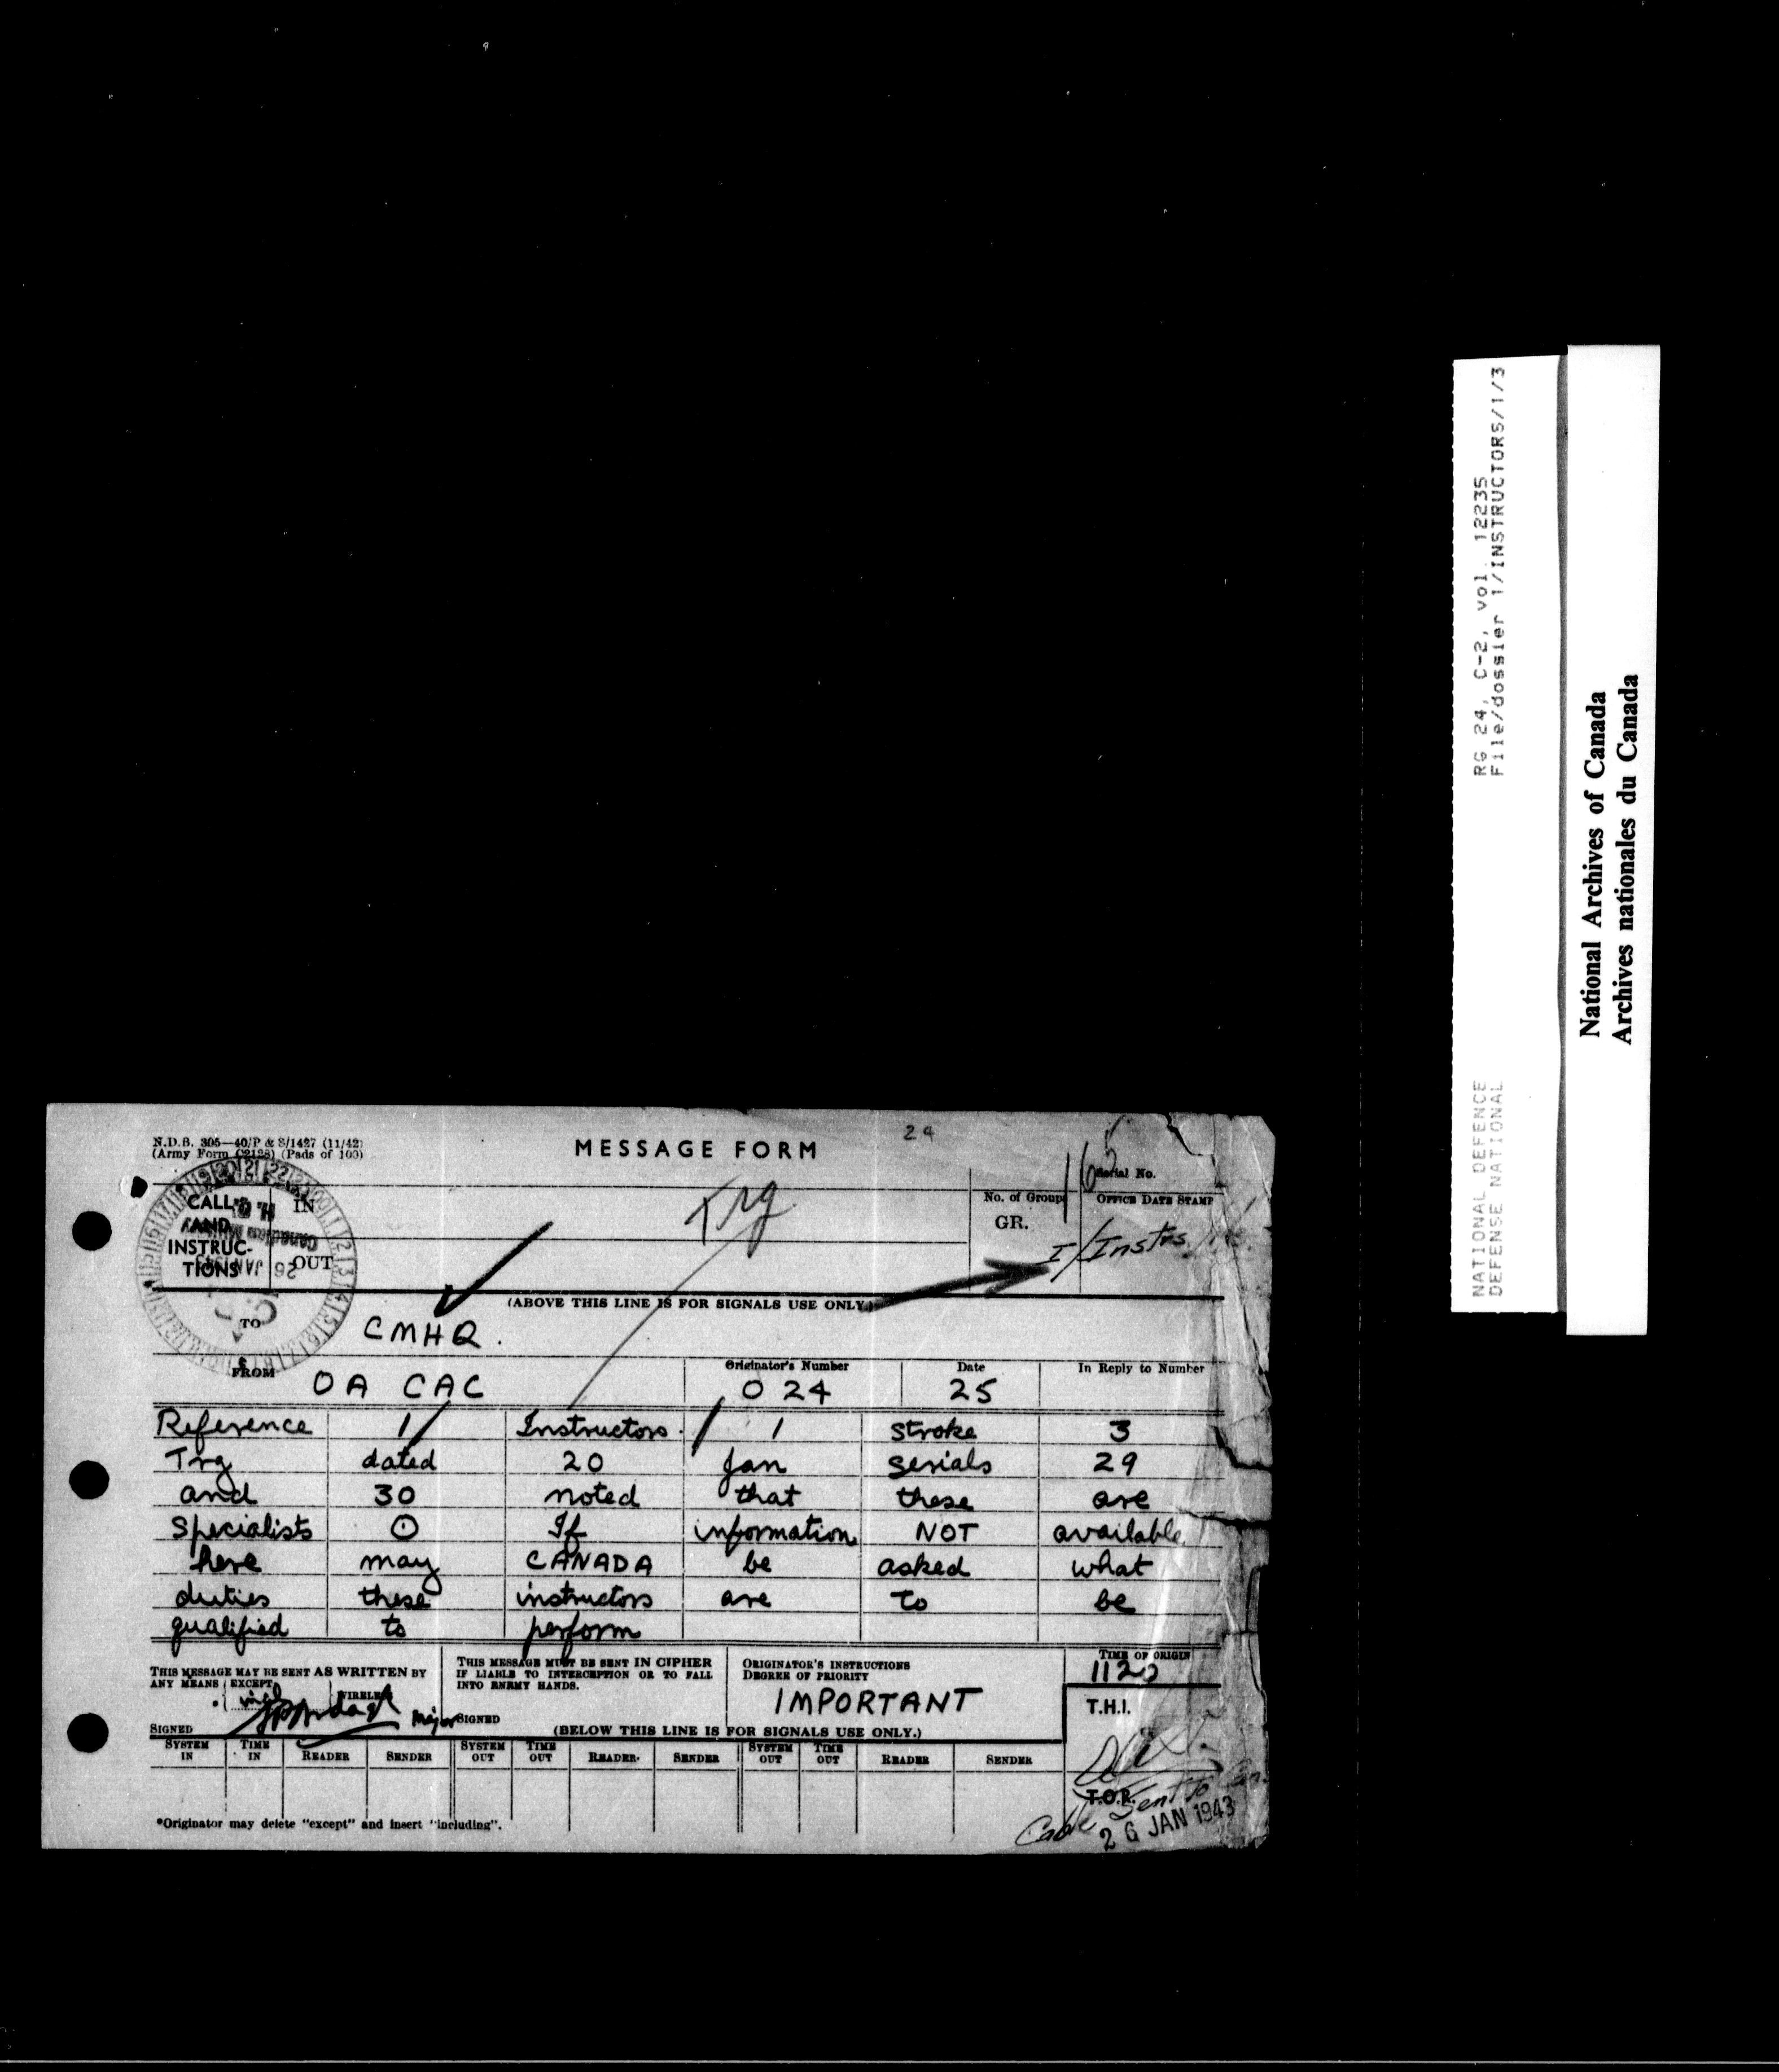 N.D.B. 305—40/P & S/1427 (11/42)
(Army Form C2128) (Pads of 100)
MESSAGE FORM
24
Serial No.
CALL
AND
INSTRUC-
TIONS
IN
OUT
Trg
No. of Groups
GR.
OFFICE DATE STAMP
1/Instrs
26 JAN 1943
(ABOVE THIS LINE IS FOR SIGNALS USE ONLY.)
TO CMHQ.
FROM OA CAC
Originator's Number
O 24
Date
25
In Reply to Number
Reference 1/ Instructors / 1 stroke 3
Trg dated 20 Jan serials 29
and 30 noted that these are
specialists ⊙ If information NOT available
here may CANADA be asked what
duties these instructors are to be
qualified to perform
THIS MESSAGE MAY BE SENT AS WRITTEN BY
ANY MEANS EXCEPT WIRELESS
SIGNED Major
THIS MESSAGE MUST BE SENT IN CIPHER
IF LIABLE TO INTERCEPTION OR TO FALL
INTO ENEMY HANDS.
SIGNED
ORIGINATOR'S INSTRUCTIONS
DEGREE OF PRIORITY
IMPORTANT
TIME OF ORIGIN
1120
T.H.I.
(BELOW THIS LINE IS FOR SIGNALS USE ONLY.)
SYSTEM IN TIME IN READER SENDER SYSTEM OUT TIME OUT READER SENDER SYSTEM OUT TIME OUT READER SENDER
T.O.R.
Cable Sent to
26 JAN 1943
*Originator may delete "except" and insert "including".
RG 24, C-2, vol. 12235
File/dossier 1/INSTRUCTORS/1/3
NATIONAL DEFENCE
DEFENSE NATIONAL
National Archives of Canada
Archives nationales du Canada